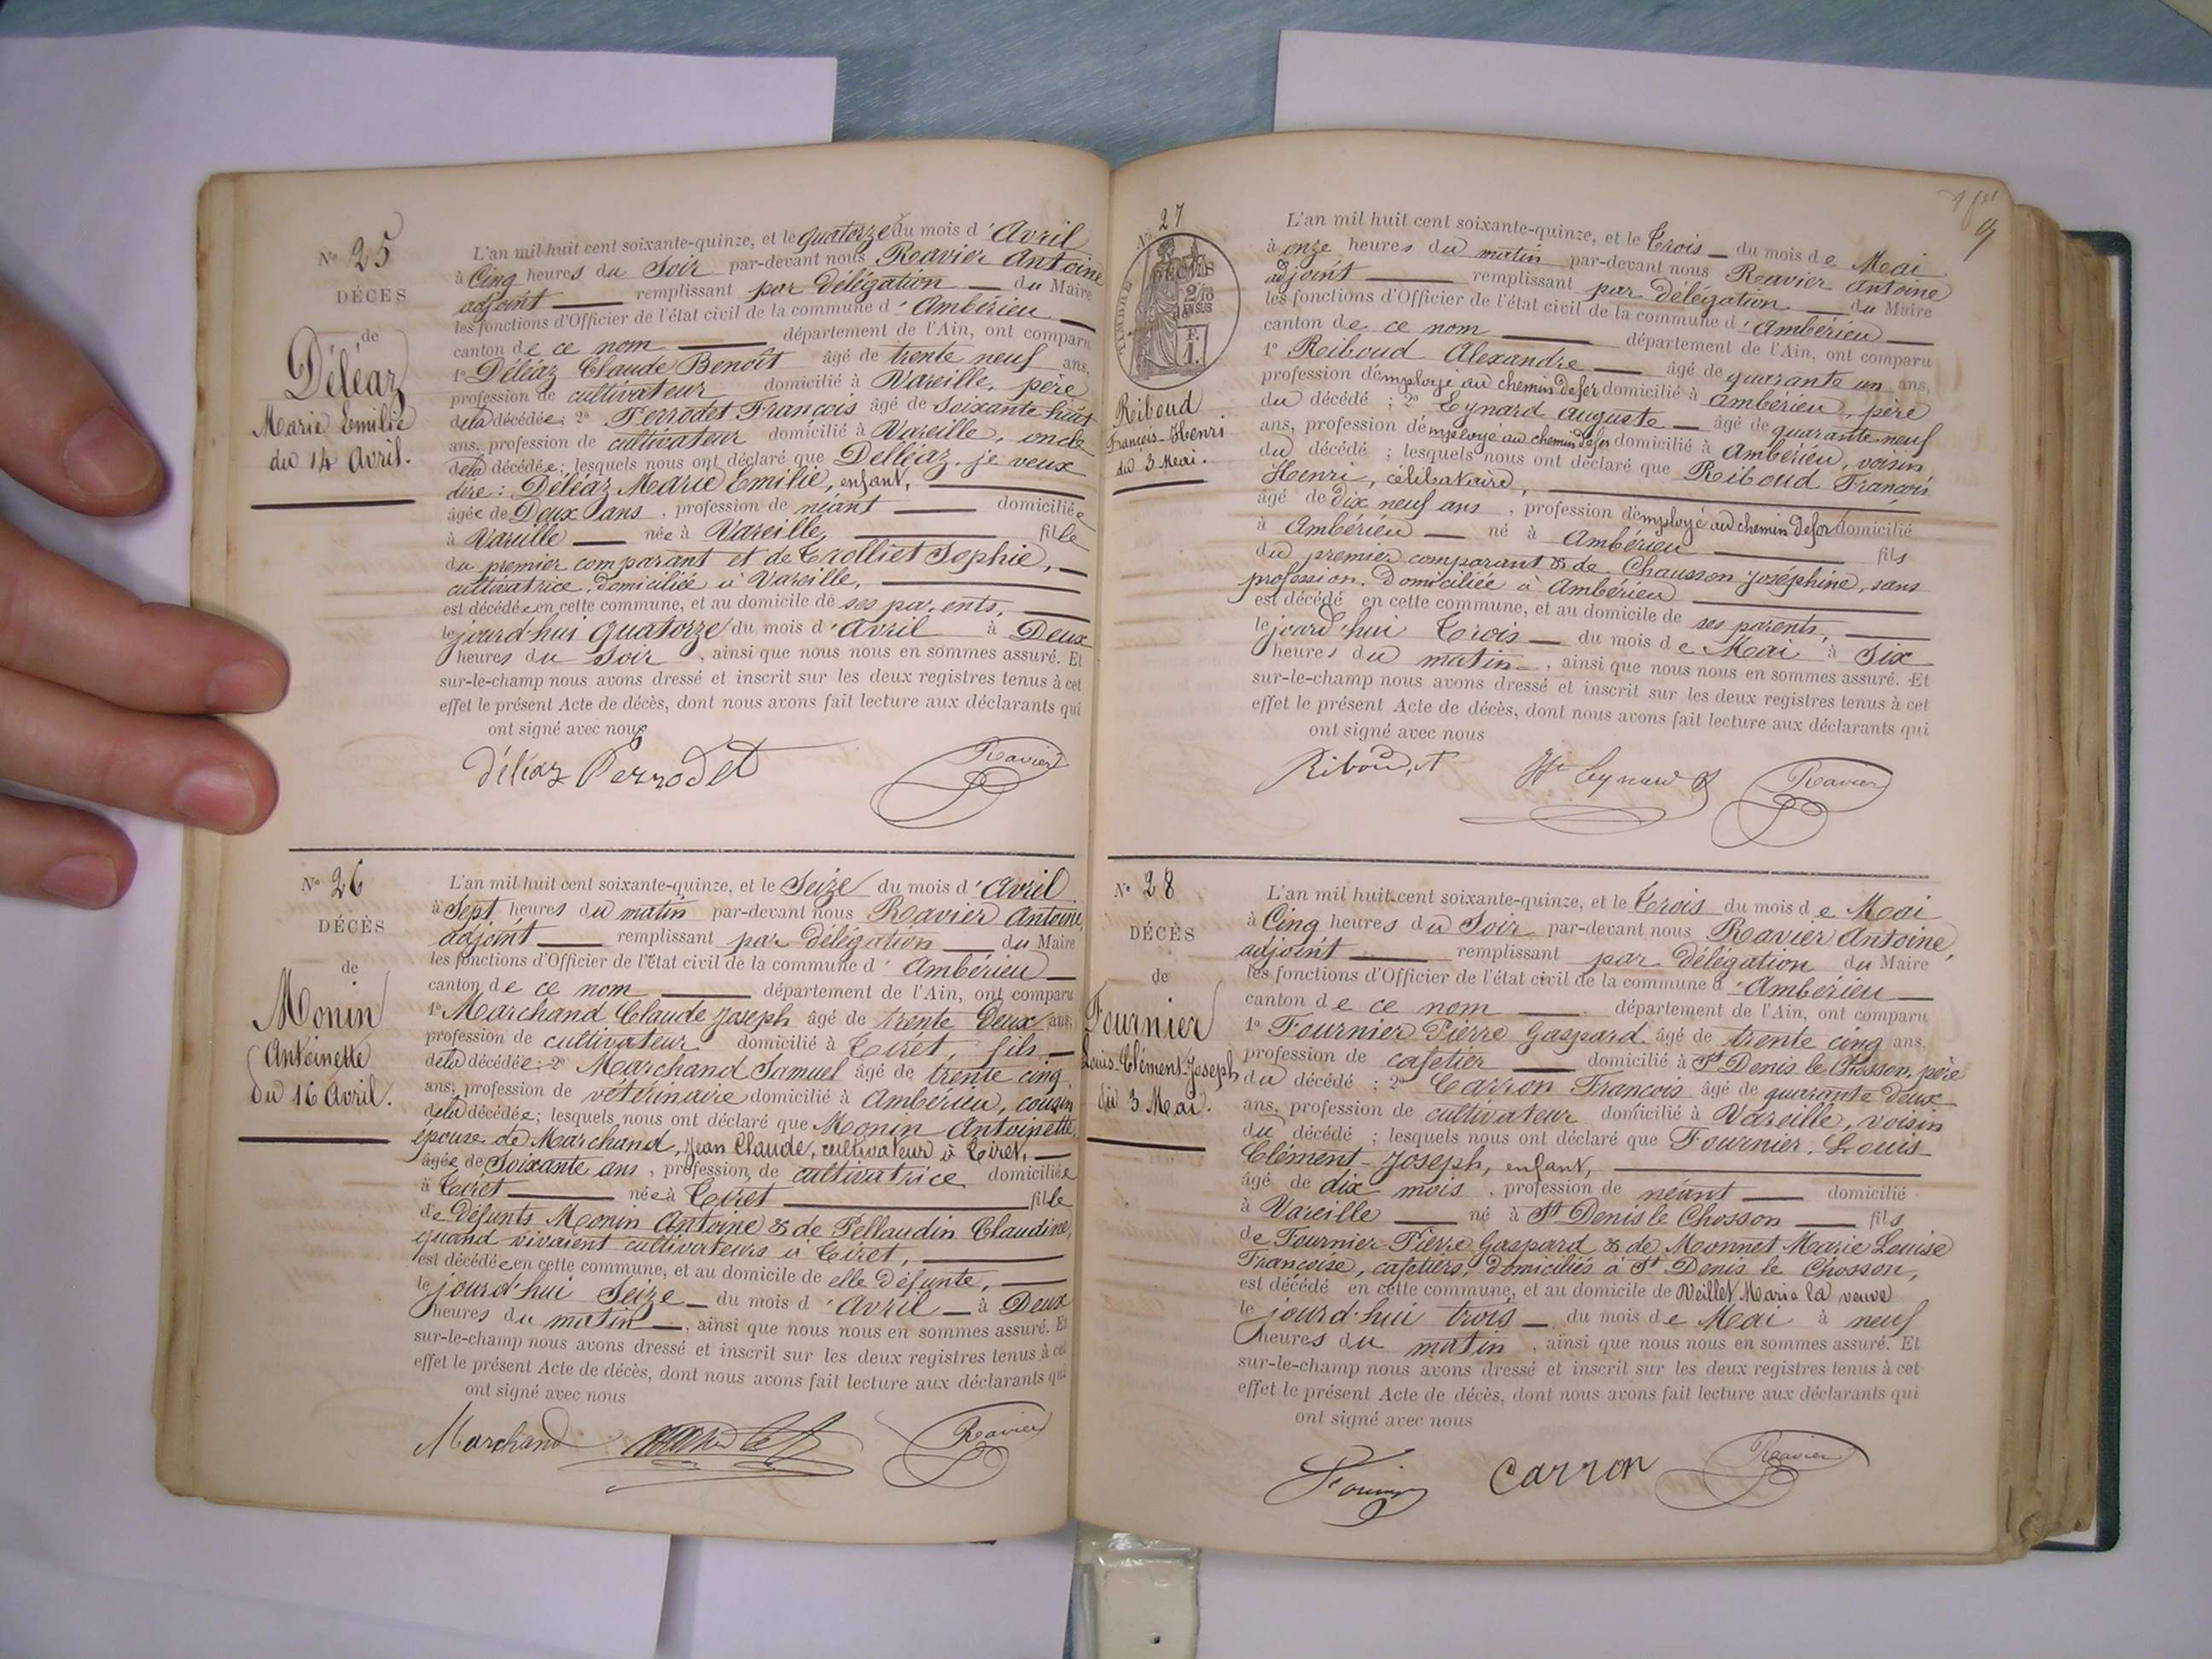 N° 25
DÉCES
de
Déléaz
Marie Emilie
du 14 Avril.
L'an mil huit cent soixante-quinze, et le quatorze du mois d'Avril
à Cinq heures du Soir par-devant nous Ravier Antoine
adjoint remplissant par délégation du Maire
les fonctions d'Officier de l'état civil de la commune d'Ambérieu
canton de ce nom département de l'Ain, ont comparu
1° Déléaz Claude Benoît âgé de trente neuf ans,
profession de cultivateur domicilié à Vareille, père
de la décédée; 2° Perrodet François âgé de soixante huit
ans, profession de cultivateur domicilié à Vareille, oncle
de la décédée; lesquels nous ont déclaré que Delléaz, je veux
dire : Déléaz Marie Emilie, enfant,
âgée de Deux ans, profession de néant domiciliée
à Vareille née à Vareille, fille
du premier comparant et de Trolliet Sophie,
cultivatrice, domiciliée à Vareille,
est décédée en cette commune, et au domicile de ses parents,
le jourd'hui quatorze du mois d'Avril à Deux
heures du Soir, ainsi que nous nous en sommes assuré. Et
sur-le-champ nous avons dressé et inscrit sur les deux registres tenus à cet
effet le présent Acte de décès, dont nous avons fait lecture aux déclarants qui
ont signé avec nous
Déléaz Perrodet Ravier
N° 26
DÉCÈS
de
Monin
Antoinette
du 16 Avril.
L'an mil huit cent soixante-quinze, et le Seize du mois d'Avril
à Sept heures du matin par-devant nous Ravier Antoine,
adjoint remplissant par délégation du Maire
les fonctions d'Officier de l'état civil de la commune d'Ambérieu
canton de ce nom département de l'Ain, ont comparu
1° Marchand Claude Joseph âgé de trente Deux ans,
profession de cultivateur domicilié à Tiret, fils
de la décédée; 2° Marchand Samuel âgé de trente cinq
ans, profession de vétérinaire domicilié à Ambérieu, cousin
de la décédée; lesquels nous ont déclaré que Monin Antoinette,
épouse de Marchand, Jean Claude, cultivateur à Tiret,
âgée de Soixante ans, profession de cultivatrice domiciliée
à Tiret née à Tiret fille
de défunts Monin Antoine & de Pellaudin Claudine,
quand vivaient cultivateurs à Tiret,
est décédée en cette commune, et au domicile de elle défunte,
le jourd'hui Seize du mois d'Avril à Deux
heures du matin, ainsi que nous nous en sommes assuré. Et
sur-le-champ nous avons dressé et inscrit sur les deux registres tenus à cet
effet le présent Acte de décès, dont nous avons fait lecture aux déclarants qui
ont signé avec nous
Marchand Ravier
9
N° 27
TIMBRE
2/10
EN SUS
1 F.
Riboud
François-Henri
du 3 Mai.
L'an mil huit cent soixante-quinze, et le Trois du mois de Mai
à onze heures du matin par-devant nous Ravier Antoine
adjoint remplissant par délégation du Maire
les fonctions d'Officier de l'état civil de la commune d'Ambérieu
canton de ce nom département de l'Ain, ont comparu
1° Riboud Alexandre âgé de quarante un ans,
profession d'employé au chemin de fer domicilié à Ambérieu, père
du décédé ; 2° Eynard Auguste âgé de quarante neuf
ans, profession d'employé au chemin de fer domicilié à Ambérieu, voisin
du décédé ; lesquels nous ont déclaré que Riboud François
Henri, célibataire,
âgé de dix neuf ans, profession d'employé au chemin de fer domicilié
à Ambérieu né à Ambérieu fils
du premier comparant & de Chausson Joséphine, sans
profession, domiciliée à Ambérieu
est décédé en cette commune, et au domicile de ses parents,
le jourd'hui Trois du mois de Mai à Six
heures du matin, ainsi que nous nous en sommes assuré. Et
sur-le-champ nous avons dressé et inscrit sur les deux registres tenus à cet
effet le présent Acte de décès, dont nous avons fait lecture aux déclarants qui
ont signé avec nous
Riboud, A Eynard Ravier
N° 28
DÉCÈS
de
Fournier
Louis-Clément-Joseph
du 3 Mai.
L'an mil huit cent soixante-quinze, et le Trois du mois de Mai
à Cinq heures du Soir par-devant nous Ravier Antoine,
adjoint remplissant par délégation du Maire
les fonctions d'Officier de l'état civil de la commune d'Ambérieu
canton de ce nom département de l'Ain, ont comparu
1° Fournier Pierre Gaspard âgé de trente cinq ans,
profession de cafetier domicilié à St Denis le Chosson, père
du décédé ; 2° Carron François âgé de quarante deux
ans, profession de cultivateur domicilié à Vareille, voisin
du décédé ; lesquels nous ont déclaré que Fournier, Louis-
Clément-Joseph, enfant,
âgé de dix mois, profession de néant domicilié
à Vareille né à St Denis le Chosson fils
de Fournier Pierre Gaspard & de Monnet Marie Louise
Françoise, cafetiers, domiciliés à St Denis le Chosson,
est décédé en cette commune, et au domicile de Veillet Marie la veuve
le jourd'hui trois du mois de Mai à neuf
heures du matin, ainsi que nous nous en sommes assuré. Et
sur-le-champ nous avons dressé et inscrit sur les deux registres tenus à cet
effet le présent Acte de décès, dont nous avons fait lecture aux déclarants qui
ont signé avec nous
Carron Ravier